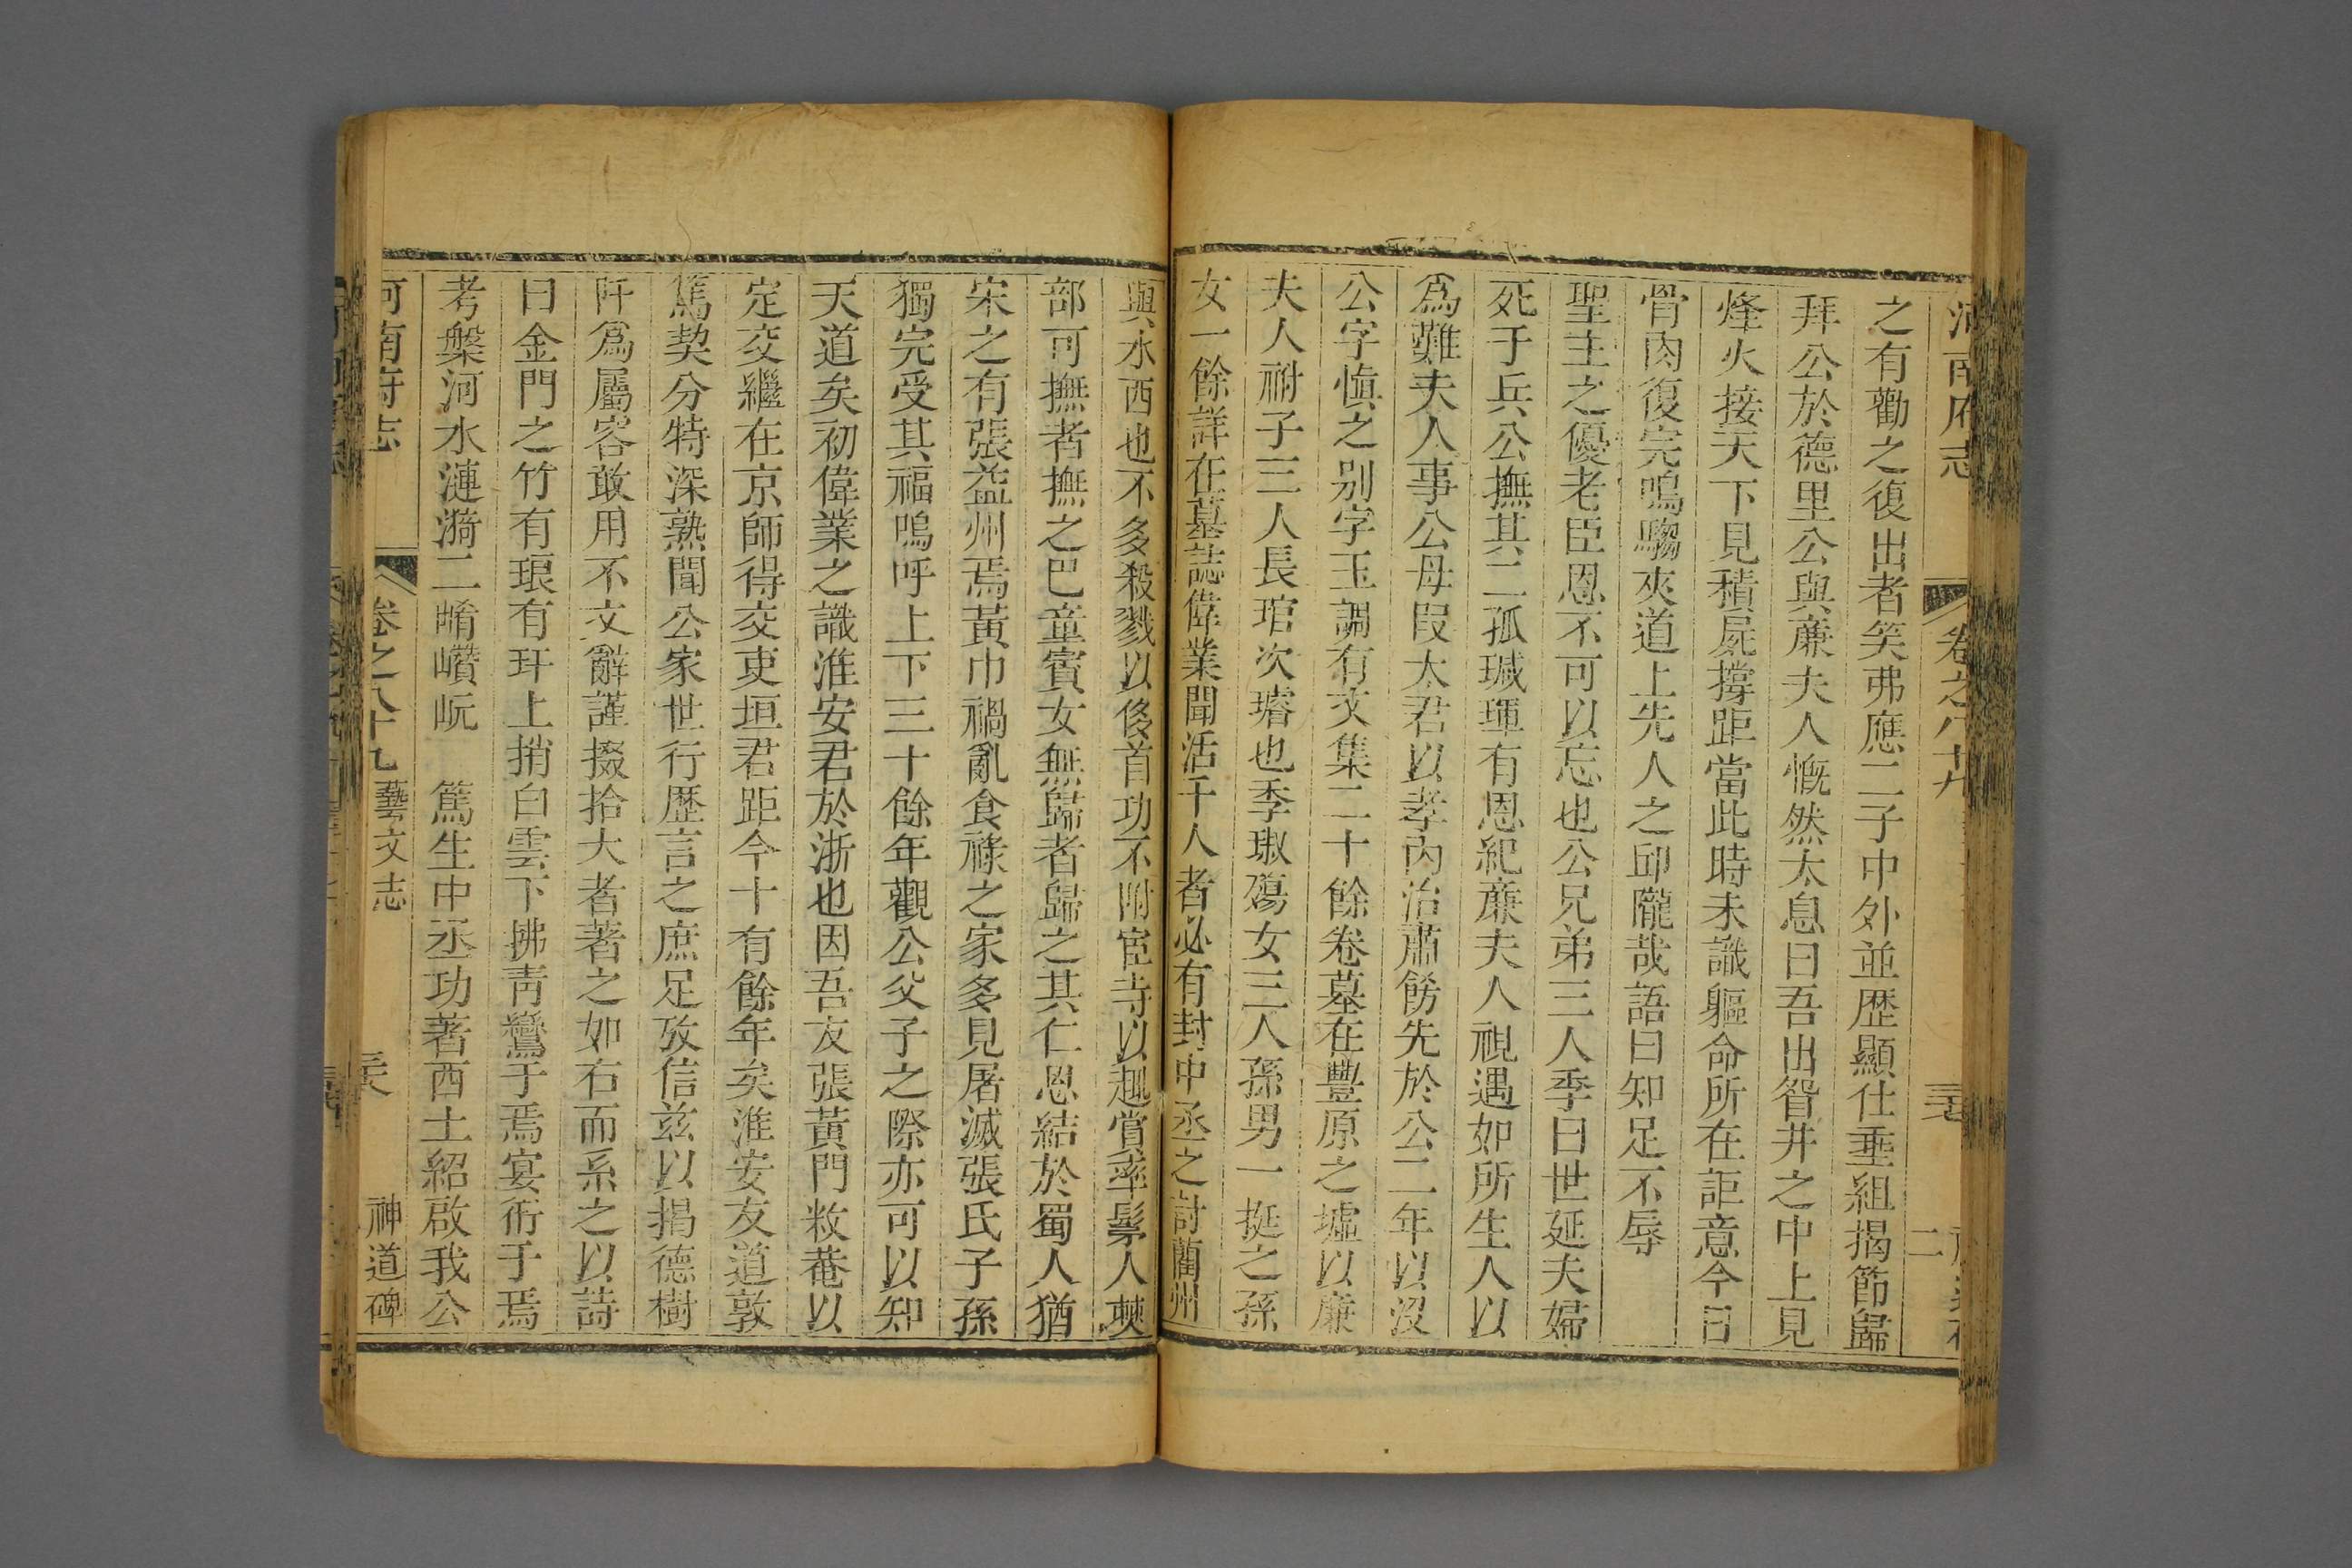 河南府志 卷之八十九
之有勸之復出者笑弗應二子中外並歷顯仕垂組揭節歸
拜公於德里公與亷夫人慨然太息曰吾出眢井之中上見
烽火接天下見積屍撐距當此時未識軀命所在詎意今日
骨肉復完鳴騶夾道上先人之邱隴哉語曰知足不辱
聖主之優老臣恩不可以忘也公兄弟三人季曰世延夫婦
死于兵公撫其二孤瑊琿有恩紀亷夫人視遇如所生人以
爲難夫人事公母叚太君以孝內治肅飭先於公二年以沒
公字愼之别字玉調有文集二十餘卷墓在豐原之墟以廉
夫人祔子三人長琯次璿也季琡殤女三人孫男一挺之孫
女一餘詳在墓誌偉業聞活千人者必有封中丞之討藺州
與水西也不多殺戮以俊首功不附宦寺以趣賞率髳人㒇
部可撫者撫之巴童賨女無歸者歸之其仁恩結於蜀人猶
宋之有張益州焉黃巾禍亂食祿之家多見屠滅張氏子孫
獨完受其福嗚呼上下三十餘年觀公父子之際亦可以知
天道矣初偉業之識淮安君於浙也因吾友張黃門敉菴以
定交繼在京師得交吏垣君距今十有餘年矣淮安友道敦
篤契分特深熟聞公家世行歷言之庶足攷信兹以揭德樹
阡爲屬客敢用不文辭謹掇拾大者著之如右而系之以詩
曰金門之竹有琅有玕上捎白雲下拂靑鸞于焉宴衎于焉
考槃河水漣漪二崤巑岏 篤生中丞功著西土紹啟我公
河南府志 卷之八十九 藝文志 神道碑